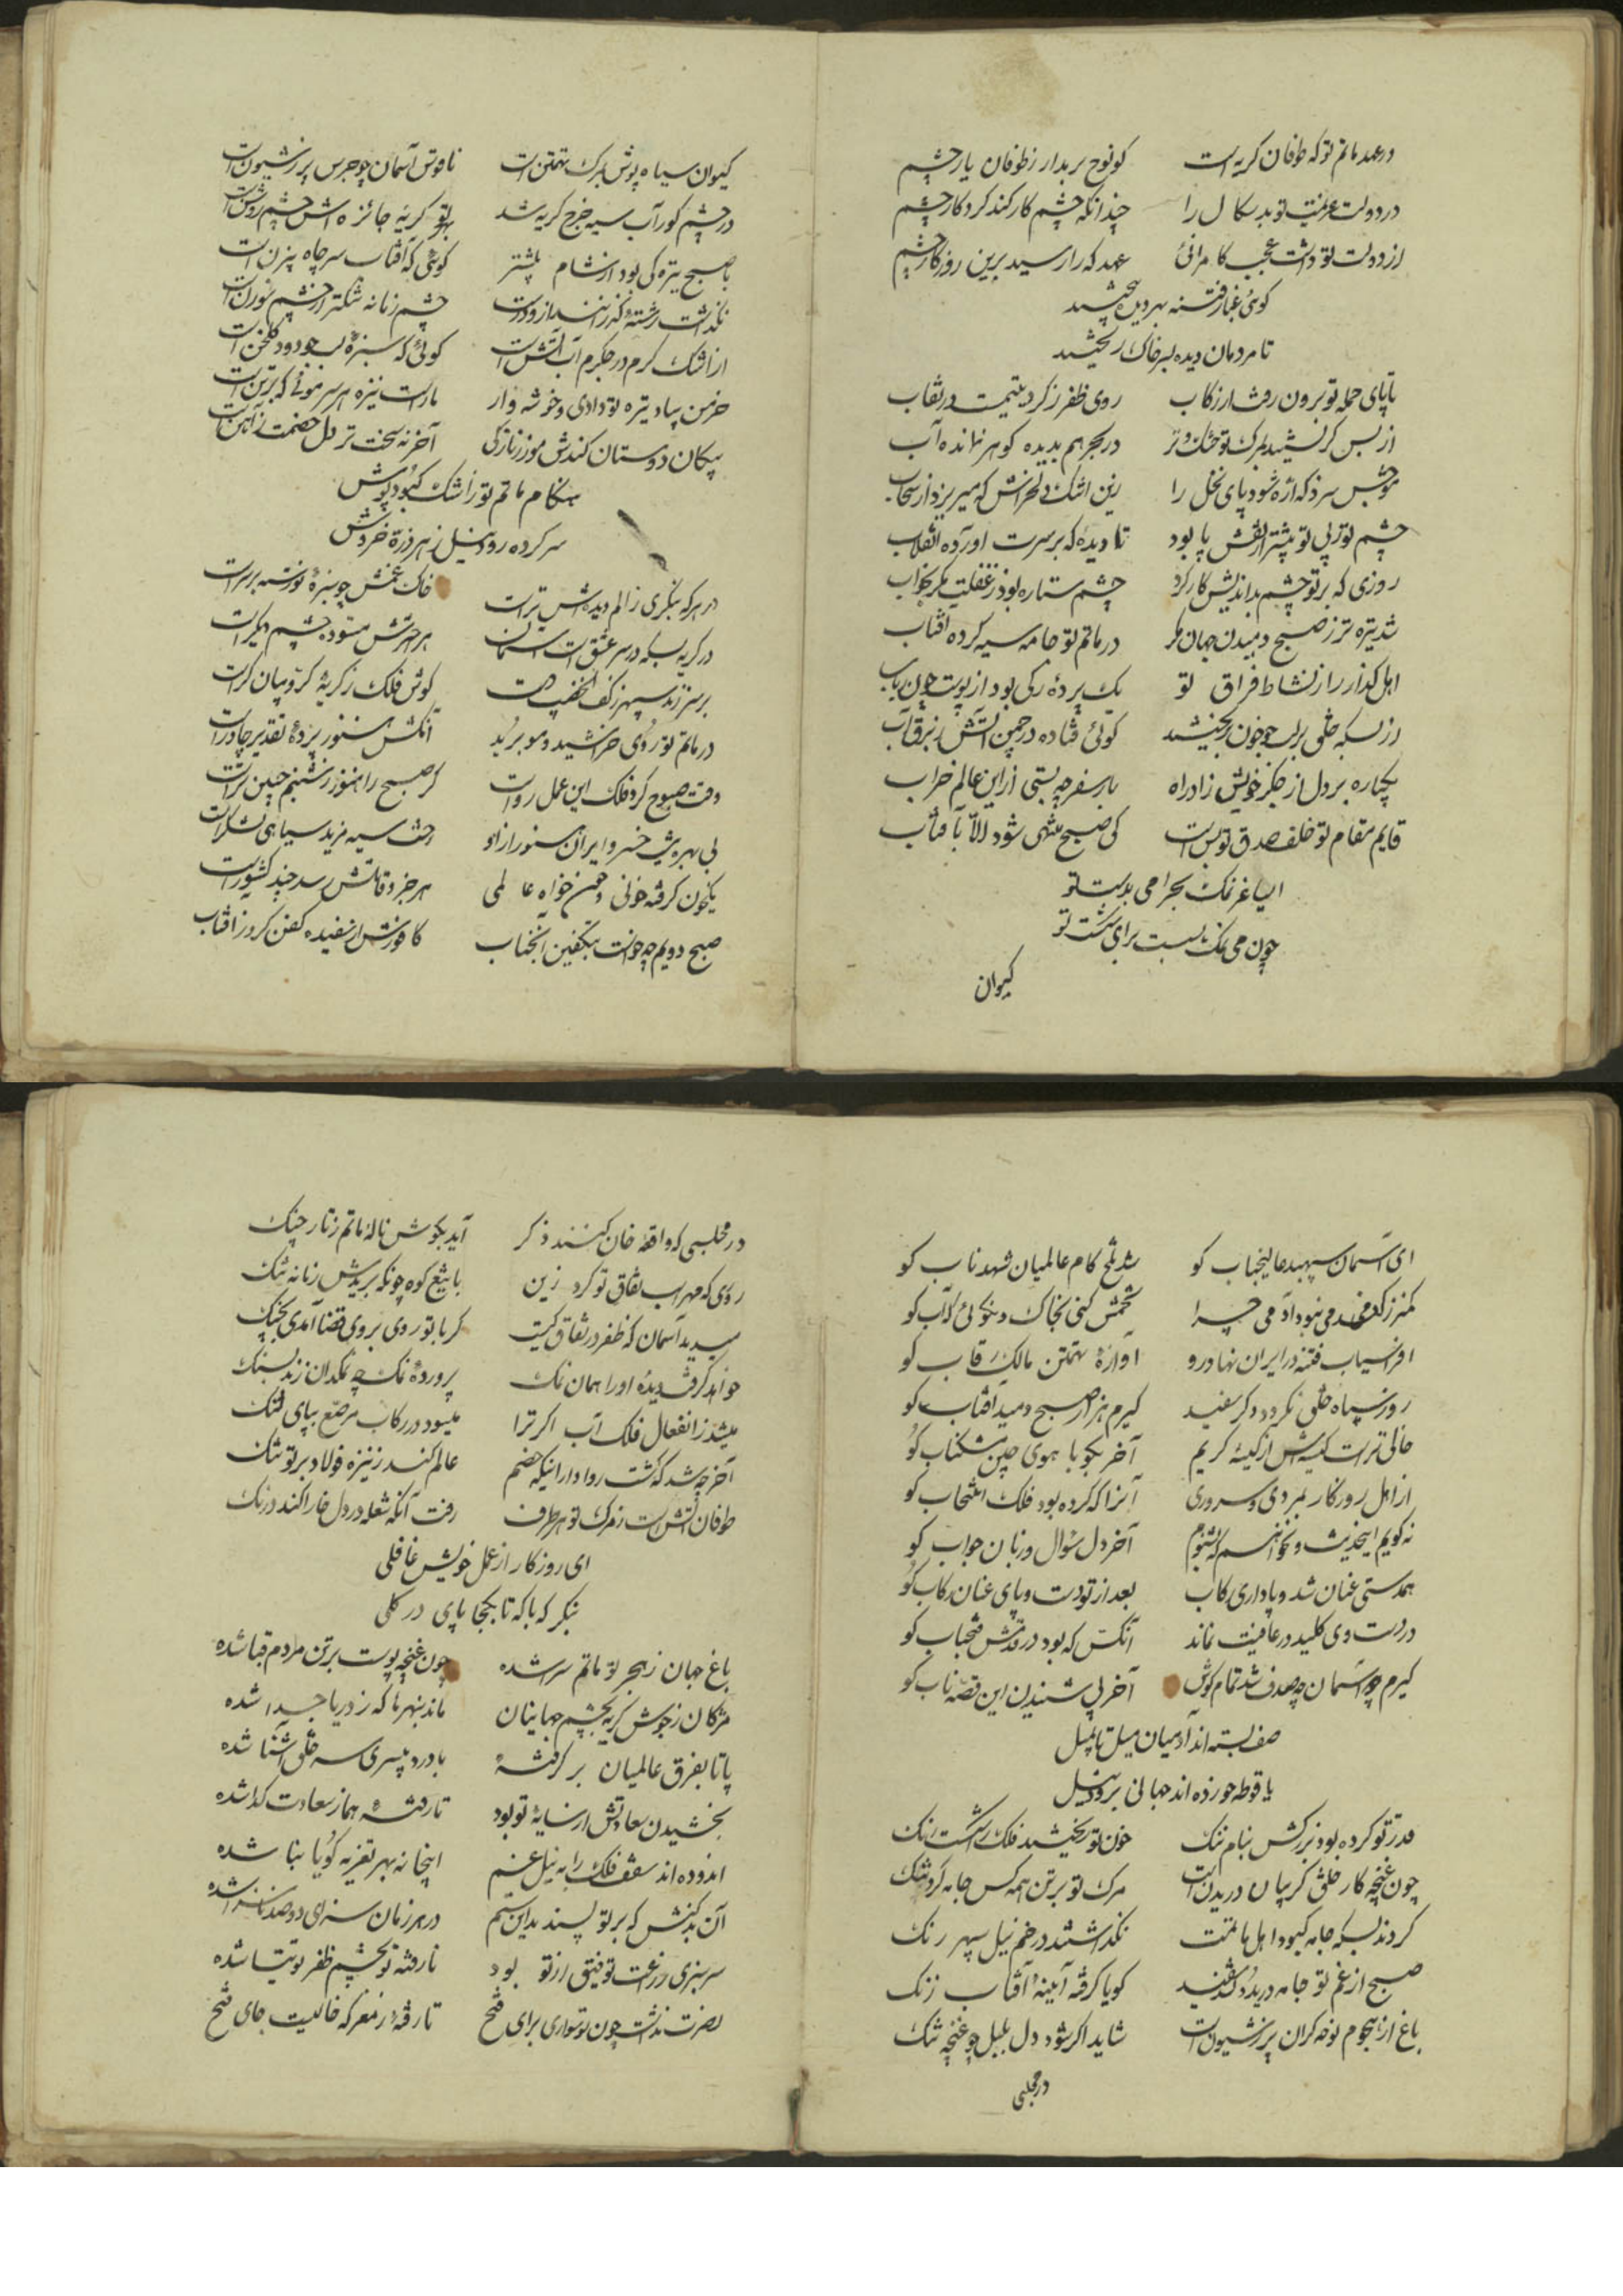 در عهد ماتم تو که طوفان گریه است کو نوح بر بدار ز طوفان یار چشم
در دولت عزیمت تو بدسکال را چندانکه چشم کار کند کرد کار چشم
از دولت تو داشت عجب کامرانئ عهد که را رسید برین روزگار چشم
کوئی غبار فتنه بهر دیده بیختند
تا مردمان دیده بسر خاک ریختند
تا پای حمله تو برون رفت از رکاب روی ظفر ز کرد یتیمیست در نقاب
از بس کریستند بمرک تو خشک و تر در بحر هم بدیده کوهر نمانده آب
موجش سزد که اژه شود پای نخل را زین اشک دلخراش که میریزد از سحاب
چشم تو از پی تو بیشتر از نقش پا بود تا دیدهٔ که بر سرت آورده انقلاب
روزی که بر تو چشم بداندیش کار کرد چشم ستاره بود ز غفلت مکر بخواب
شد تیره تر ز صبح دمیدن جهان مکر در ماتم تو جامه سیه کرده آفتاب
اهل کداز را ز نشاط فراق تو یک پردهٔ رکی بود از پوست چون رباب
از بسکه خلق بر لب جو خون بریختند کوئی فتاده در چمن آتش ز برق آب
یکباره بر دل از جکر خویش زاد راه بار سفر چه بستی ازین عالم خراب
قایم مقام تو خلف صدق تو بس است کی صبح منتهی شود الا بآفتاب
ای ساغر نمک بحرامی بدست تو
چون می نمک نبست برای شکست تو
کیوان
کیوان سیاه پوش بمرک تهمتن است ناقوس آسمان چو جرس پر ز شیون است
در چشم کور آب سیه خرج کریه شد بر تو کریه جائزه اش چشم روشن است
با صبح تیره کی بود از شام بیشتر کوئی که آفتاب سر چاه بیژن است
نکذاشت رشتهٔ کذرانند از و درست چشم زمانه تنکتر از چشم سوزن است
از اشک کرم در جکرم آب آتش است کوئی که سبزهٔ لب جو دود کلخن است
خرمن بباد تیره تو دادی و خوشه وار مارا ست نیزه هر سر موئی که بر تن است
پیکان دوستان کندش موز ز نازکی آخر نه سخت تر دل خصمت ز آهن است
هنکام ماتم تو ز اشک کبود پوش
سر کرده رود نیل ز هر ذره خروش
در هر که بنکری ز الم دیده اش تر است خاک غمش چو سبزهٔ نورسته بر سر است
در کریه بسکه در سر عشق است آسمان هر خترش ستوده چشم دیکر است
بر سر زند سپهر ز کف الخضیب دست کوش فلک ز کریهٔ کروبیان کر است
در ماتم تو روی خراشید و مو برید آنکش هنوز پردهٔ تقدیر چادر است
وقت صبوح کرد فلک این عمل رواست کر صبح را هنوز ز شبنم جبین تر است
بی بهره شد خسرو ایران هنوز ازو رخت سیه مزید سیاهی لشکر است
یکخون کرفته خونی و خون خواه عالمی هر جزو قاتلش رسد چند کشور است
صبح دویم چه خواست بتکفین آنجناب کافورش از سفیده کفن کرد ز آفتاب
ای آسمان سپهبد عالیجناب کو شد تلخ کام عالمیان شهد ناب کو
کمتر ز کندمی نبود آدمی چرا تخمش کنی بخاک و نکوئی که آب کو
افراسیاب فتنه در ایران نهاد رو آوازهٔ تهمتن مالک رقاب کو
روز سیاه خلق نکردد دکر سفید کیرم هزار صبح دمید آفتاب کو
خالی تر است کیسه اش از کیسهٔ کریم آخر بکو بآهوی چین مشکناب کو
از اهل روزکار بمردی و سروری آنرا که کرده بود فلک انتخاب کو
نه کویم این حدیث و نخواهم که بشنوم آخر دل سؤال و زبان جواب کو
همدستی عنان شد و پاداری رکاب بعد از تو دست و پای عنان رکاب کو
در دست وی کلید در عافیت نماند آنکس که بود در قدمش فتحباب کو
کیرم چو آسمان چه صدف شد تمام کوش آخر پی شنیدن این قصه تاب کو
صف بسته اند آدمیان میل تا بمیل
یا قوطه خورده اند جهانی برود نیل
قدر تو کرده بود بزرکش بنام تنک خون تو ریختند فلک را شکست رنک
چون غنچه کار خلق کریبان دریدن است مرک تو بر تن همه کس جامه کرد تنک
کردند بسکه جامه کبود اهل ماتمت نکذاشتند در خم نیل سپهر رنک
صبح از غم تو جامه دریده کفن سفید کویا کرفته آینهٔ آفتاب زنک
باغ از هجوم نوحه کران پر ز شیون است شاید اکر شود دل بلبل چو غنچه تنک
در مجلسی
در مجلسی که واقعه خان کنند ذکر آید بکوش نالهٔ ماتم ز تار چنک
روی که سهراب نفاق تو کرد زین با تیغ کوه چونکه بریدش زمانه تنک
میدید آسمان که ظفر در نفاق کیست کر با تو روی بروی قضا آمدی بجنک
خواهد کرفت دیدهٔ او را همان نمک پروردهٔ نمک چه نمکدان زند بسنک
میشد ز انفعال فلک آب اکر ترا میسود در رکاب مرصع بپای لنک
آخر چه شد که کشت روا دار اینکه خصم عالم کند ز نیزه فولاد بر تو تنک
طوفان آتش است ز مرک تو هر طرف رفت آنکه شعله در دل خارا کند درنک
ای روزکار از عمل خویش غافلی
بنکر که با که تا بکجا پای در کلی
باغ جهان ز هجر تو ماتم سرا شده چون غنچه پوست بر تن مردم قبا شده
مژکان ز جوش کریه بچشم جهانیان ماند بنهرها که ز دریا جدا شده
پا تا بفرق عالمیان بر کرفته با درد بیسری سر خلق آشنا شده
بخشیدن سعادتش از سایهٔ تو بود تا رفته هما ز سعادت کدا شده
اندوده اند سقف فلک را به نیل غم اینخانه بهر تعزیه کویا بنا شده
آن بد کنش که بر تو پسندید این ستم در هر زمان سزای دو صد ناسزا شده
سرسبزی زراعت توفیق از تو بود تا رفته تو بچشم ظفر توتیا شده
نصرت نداشت چون تو سواری برای فتح تا رفتهٔ ز معرکه خالیست جای فتح